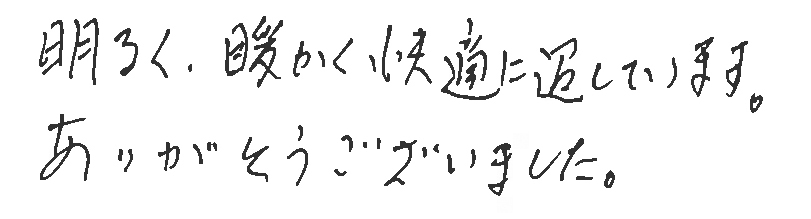 明るく、暖かく快適に過しています。
ありがとうございました。